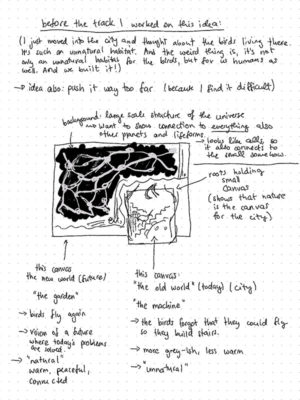 before the track I worked on this idea:
(I just moved into the city and thought about the birds living there.
It's such an unnatural habitat. And the weird thing is, it's not
only an unnatural habitat for the birds, but for us humans as
well. And we built it!)
→ idea also: push it way too far (because I find it difficult)
background: large scale structure of the universe
→ want to show connection to everything also
other planets and lifeforms.
→ looks like cells, so
it also connects to
the small somehow.
roots holding
small
canvas
(shows that nature
is the canvas
for the city)
this canvas
the new world (future)
"the garden"
→ birds fly again
→ vision of a future
where today's problems
are solved.
→ "natural"
warm, peaceful,
connected
this canvas:
"the old world" (today) (city)
"the machine"
→ the birds forgot that they could fly
so they build stairs.
→ more grey-ish, less warm
→ "unnatural"